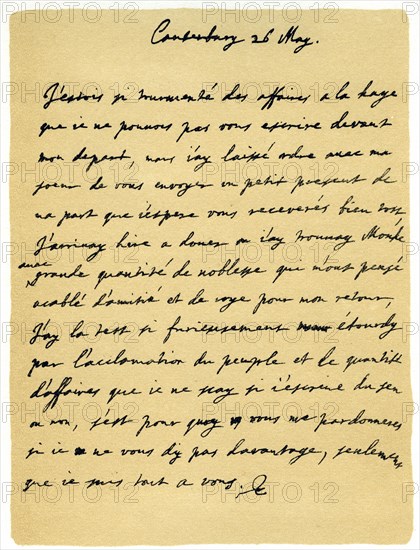 Canterbury 26 May.
J'estois si tourmenté des affaires a la haye
que ie ne pouvois pas vous escrire devant
mon depart, mais i'ay laissé ordre avec ma
soeur de vous envoyer un petit present de
ma part que i'espere vous receverés bien tost
J'arrivay hier a douer ou i'ay trouvay Monke
avec
grande quantité de noblesse qui m'ont pensé
acablé d'amitié et de joye pour mon retour,
J'ay la test si furieusement étourdy
par l'acclamation du peuple et le quantité
d'affaires que ie ne scay si i'escrive du sen
ou non, s'est pour quoy vous me pardonneres
si ie ne vous dy pas davantage, seulement
que ie suis tout a vous. C
PHOTO 12